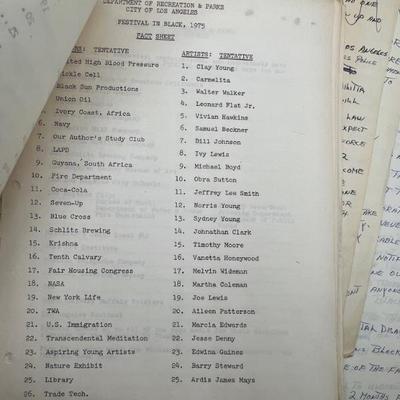 DEPARTMENT OF RECREATION & PARKS
CITY OF LOS ANGELES
FESTIVAL IN BLACK, 1975
FACT SHEET
TENTATIVE ARTISTS: TENTATIVE
High Blood Pressure 1. Clay Young
Sickle Cell 2. Carmelita
Black Sun Productions 3. Walter Walker
Union Oil 4. Leonard Flat Jr.
Ivory Coast, Africa 5. Vivian Hawkins
6. Navy 6. Samuel Beckner
7. Our Author's Study Club 7. Bill Johnson
8. LAPD 8. Ivy Lewis
9. Guyana, South Africa 9. Michael Boyd
10. Fire Department 10. Obra Sutton
11. Coca-Cola 11. Jeffrey Lee Smith
12. Seven-Up 12. Norris Young
13. Blue Cross 13. Sydney Young
14. Schlitz Brewing 14. Johnathan Clark
15. Krishna 15. Timothy Moore
16. Tenth Calvary 16. Vanetta Honeywood
17. Fair Housing Congress 17. Melvin Wideman
18. NASA 18. Martha Coleman
19. New York Life 19. Joe Lewis
20. TWA 20. Aileen Patterson
21. U.S. Immigration 21. Marcia Edwards
22. Transcendental Meditation 22. Jesse Denny
23. Aspiring Young Artists 23. Edwina Gaines
24. Nature Exhibit 24. Barry Steward
25. Library 25. Ardis James Mays
26. Trade Tech.
LOS ANGELES
LAW
EXPECT
COME
TAKE
ANYONE
BLACK
OF THE FA
2 MONTHS